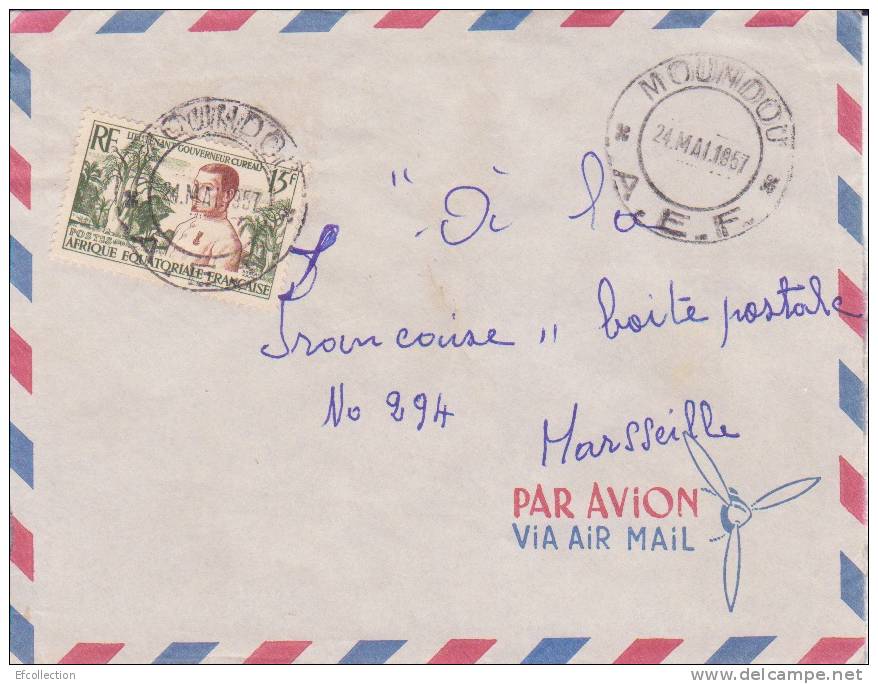 MOUNDOU
24.MAI.1957
A.E.F.
MOUNDOU
24.MAI.1957
RF LIEUTENANT GOUVERNEUR CUREAU 15F
POSTES
AFRIQUE EQUATORIALE FRANÇAISE
" à la
Francaise " boite postale
No 294
Marsseille
PAR AViON
ViA AiR MAiL
Efcollection
www.delcampe.net